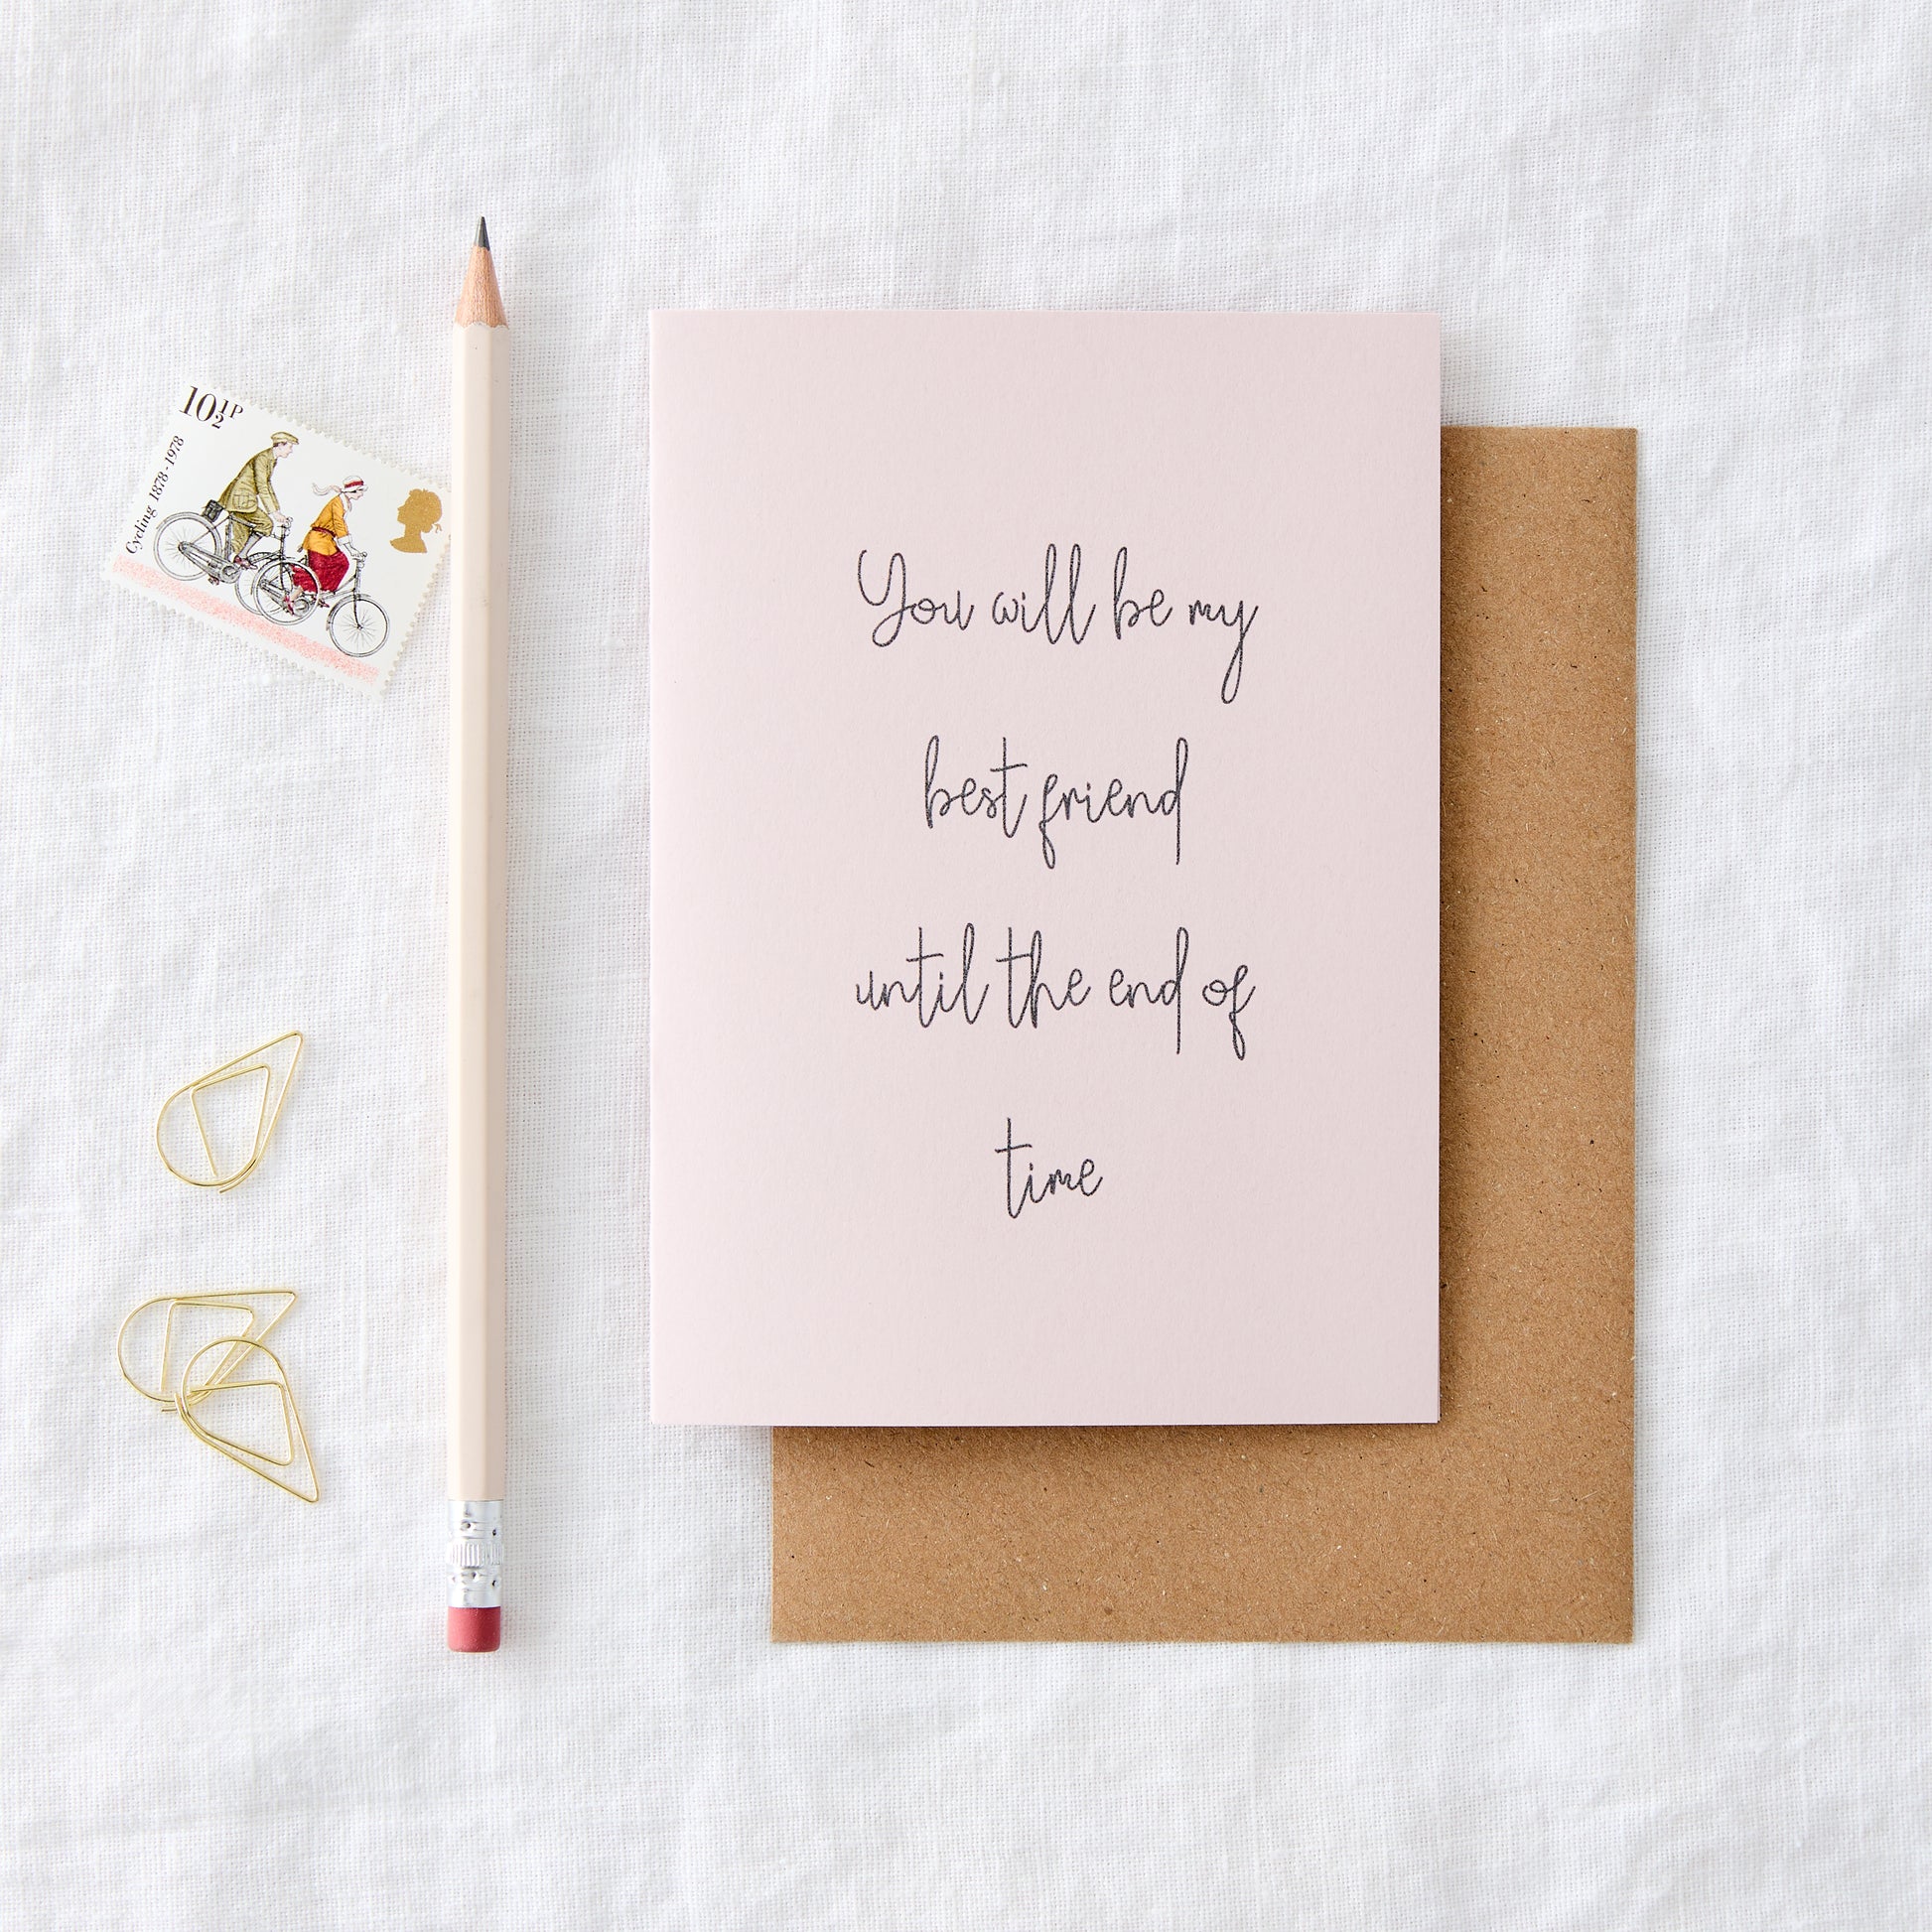 10½P
Cycling 1878-1978
You will be my
best friend
until the end of
time